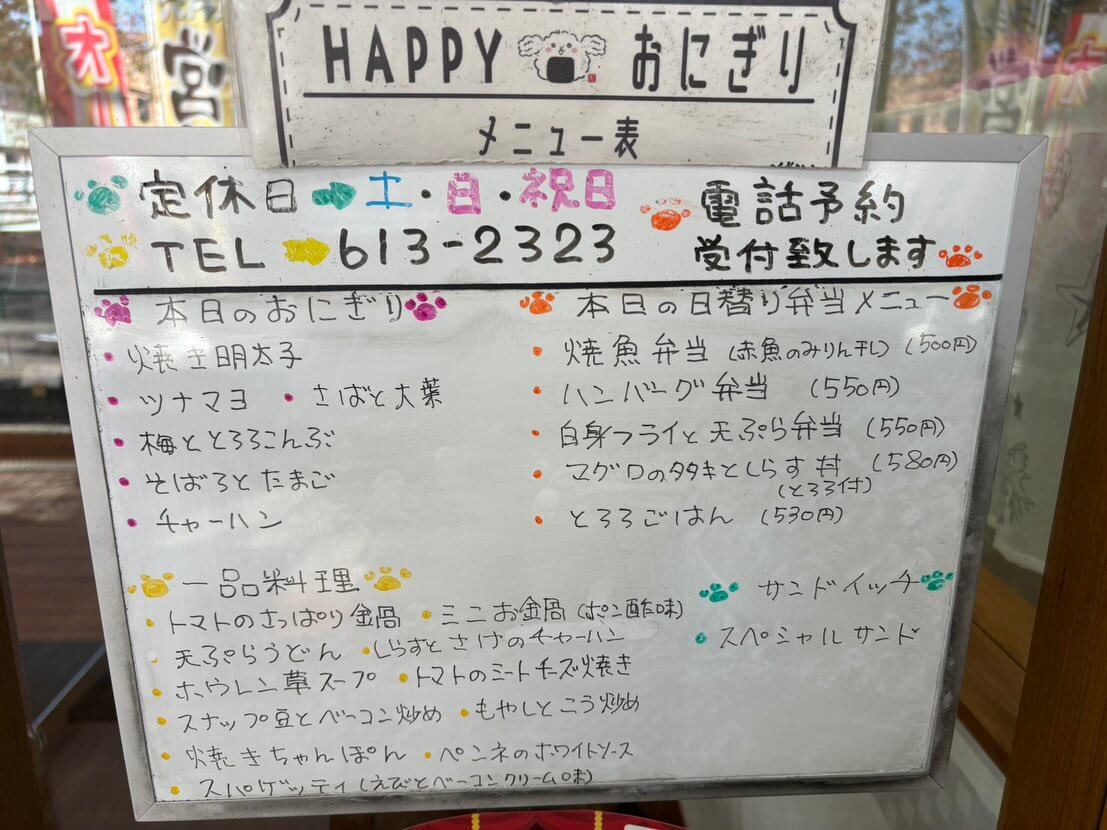 HAPPY おにぎり
メニュー表
定休日 土・日・祝日
TEL 613-2323
電話予約
受付致します
本日のおにぎり
・焼き明太子
・ツナマヨ ・さばと大葉
・梅ととろろこんぶ
・そばろとたまご
・チャーハン
本日の日替り弁当メニュー
・焼魚弁当 (赤魚のみりん干し) (500円)
・ハンバーグ弁当 (550円)
・白身フライと天ぷら弁当 (550円)
・マグロのタタキとしらす丼 (580円)
(とろろ付)
・とろろごはん (530円)
一品料理
・トマトのさっぱり金咼 ・ミニお金咼 (ポン酢味)
・天ぷらうどん ・しらすとさけのチャーハン
・ホウレン草スープ ・トマトのミートチーズ焼き
・スナップ豆とベーコン炒め ・もやしとこう炒め
・焼きちゃんぽん ・ペンネのホワイトソース
・スパゲッティ (えびとベーコンクリーム味)
サンドイッチ
・スペシャルサンド
営